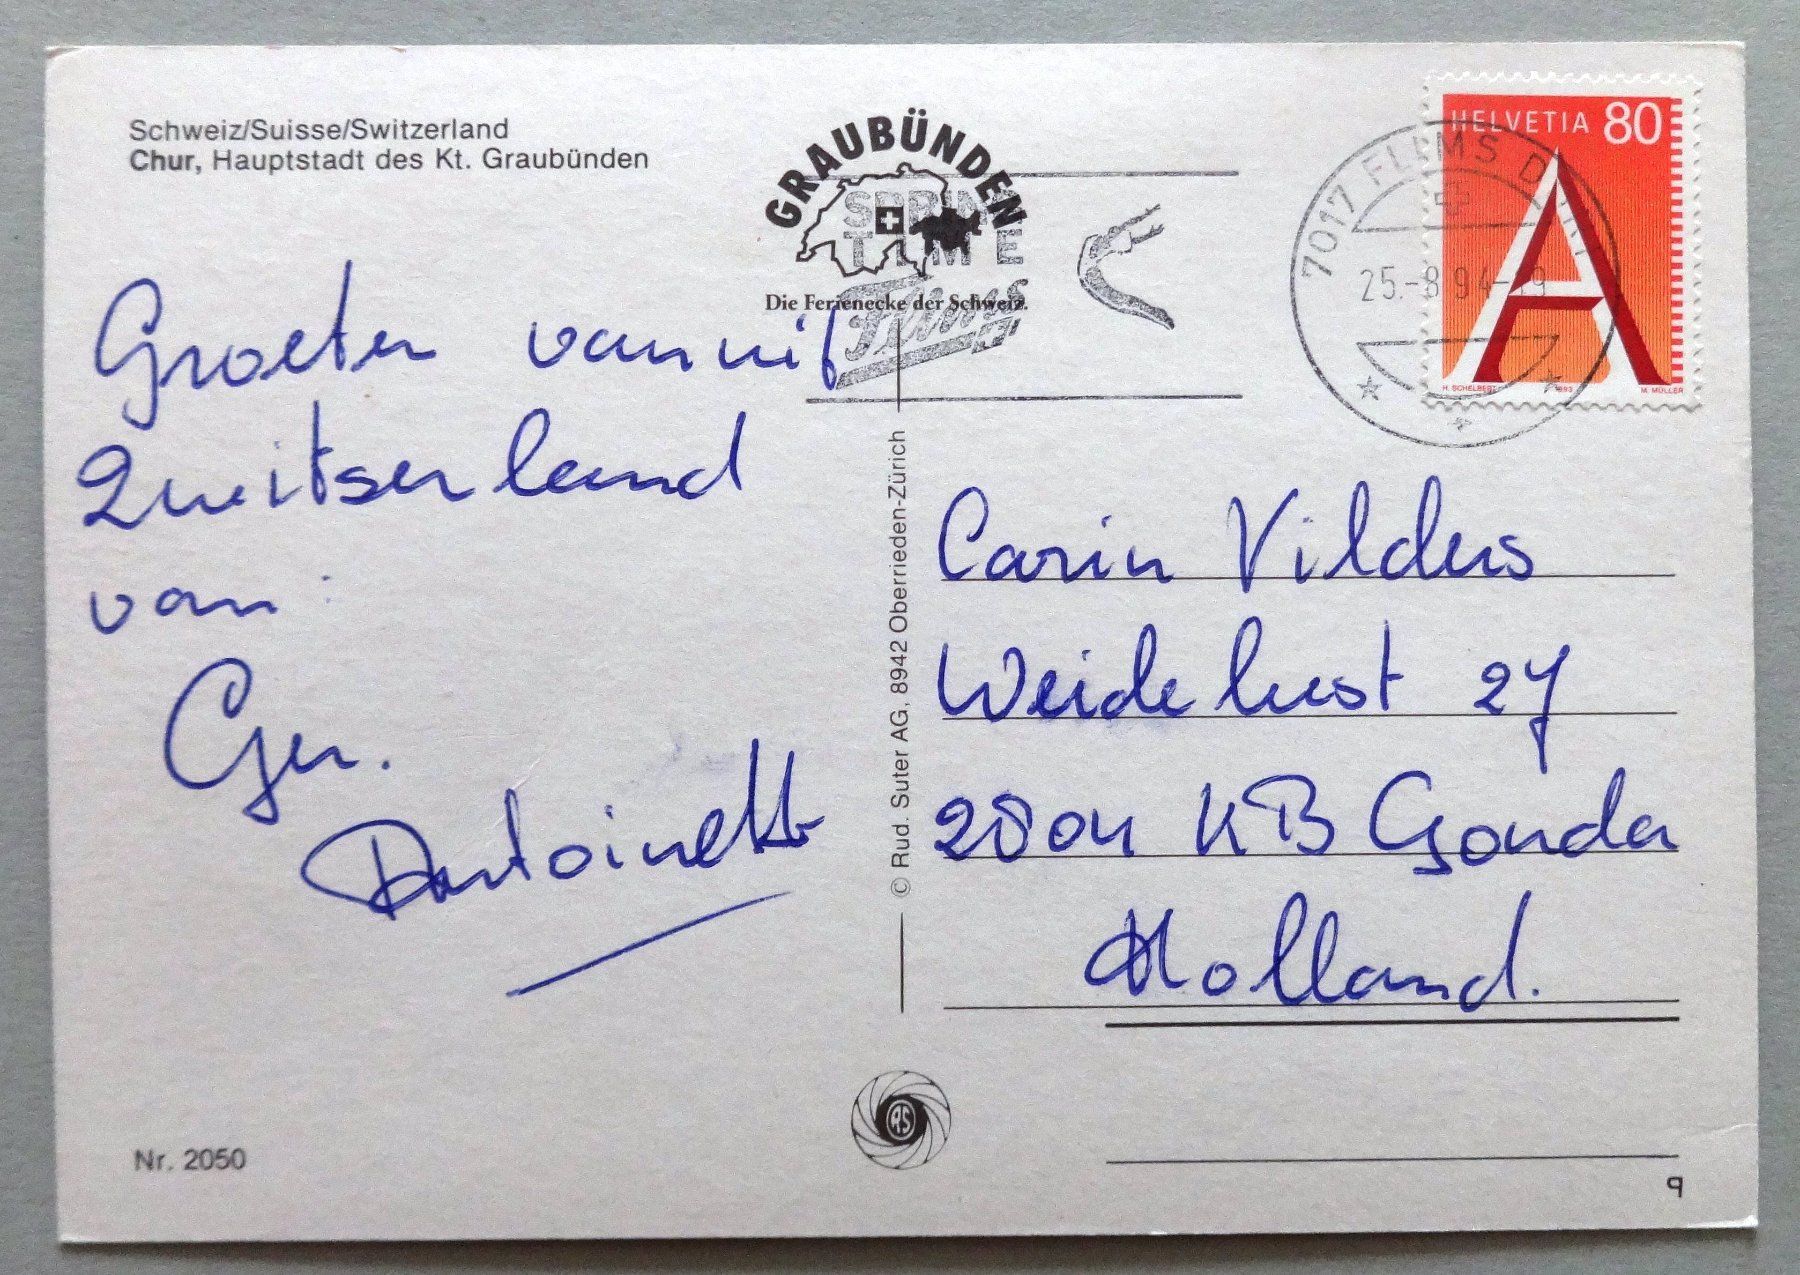 Schweiz/Suisse/Switzerland
Chur, Hauptstadt des Kt. Graubünden
GRAUBÜNDEN
Die Ferienecke der Schweiz.
SPRING
TIME
Flims
7017 FLIMS DORF
25.-8.94-9
HELVETIA 80
A
H. SCHELBERT
1993
M. MÜLLER
Groeten vanuit
Zwitserland
van:
Ger.
Antoinette
© Rud. Suter AG, 8942 Oberrieden-Zürich
Carin Vilders
Weidelust 27
2804 KB Gouda
Holland.
RS
Nr. 2050
9